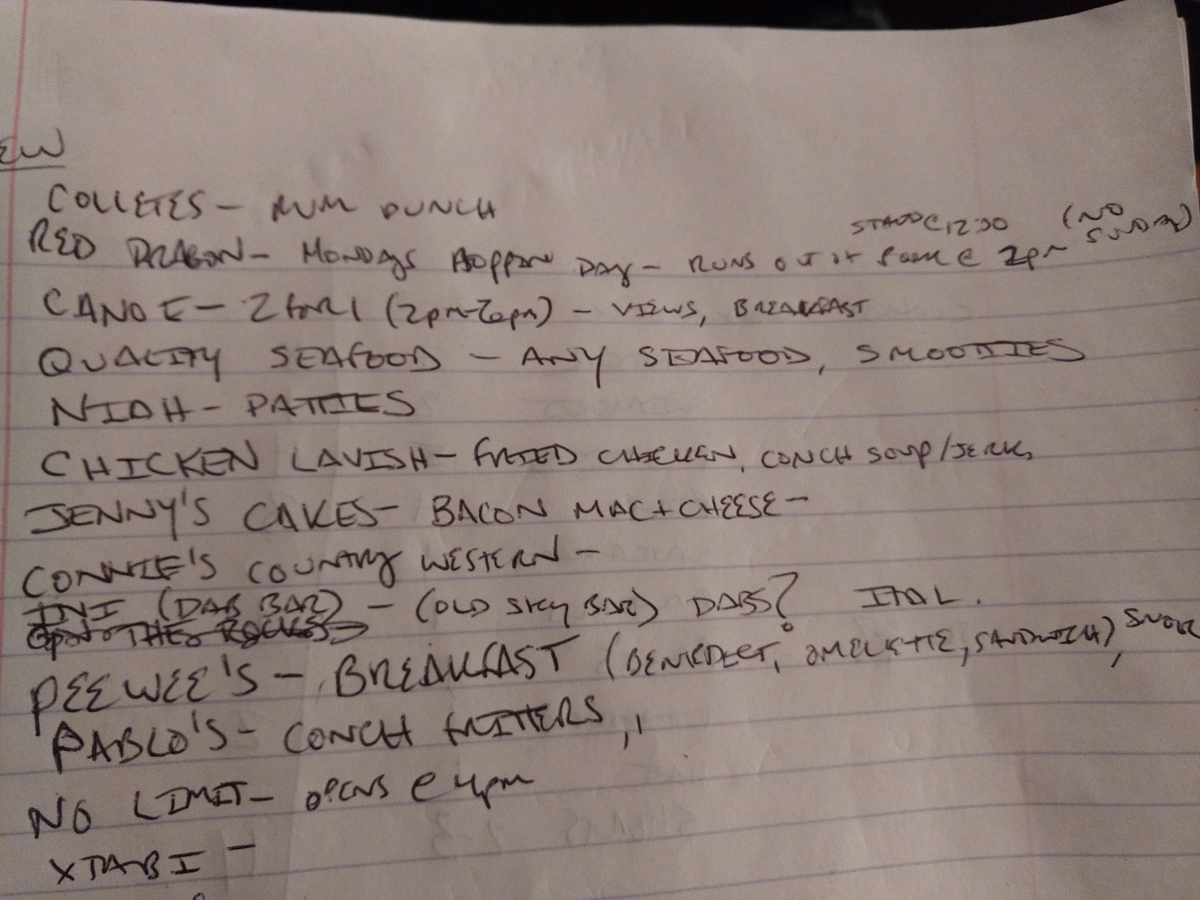 EW
COLLETES - RUM PUNCH
START @ 12:30 (NO SUNDAY)
RED DRAGON - MONDAYS DAY - RUNS OUT OF PORK @ 2pm
CANOE - 2 FOR 1 (2pm-6pm) - VIEWS, BREAKFAST
QUALITY SEAFOOD - ANY SEAFOOD, SMOOTIES
NIAH - PATTIES
CHICKEN LAVISH - FRIED CHICKEN, CONCH SOUP/JERK,
JENNY'S CAKES - BACON MAC + CHEESE -
CONNIE'S COUNTRY WESTERN -
(DAB BAR) - (OLD SKY BAR) DABS? ITAL.
ON THE ROCKS
PEEWEE'S - BREAKFAST (BENEDICT, OMELETTE, SANDWICH),
PABLO'S - CONCH FRITTERS,,
NO LIMIT - OPENS @ 4pm
XTABI -